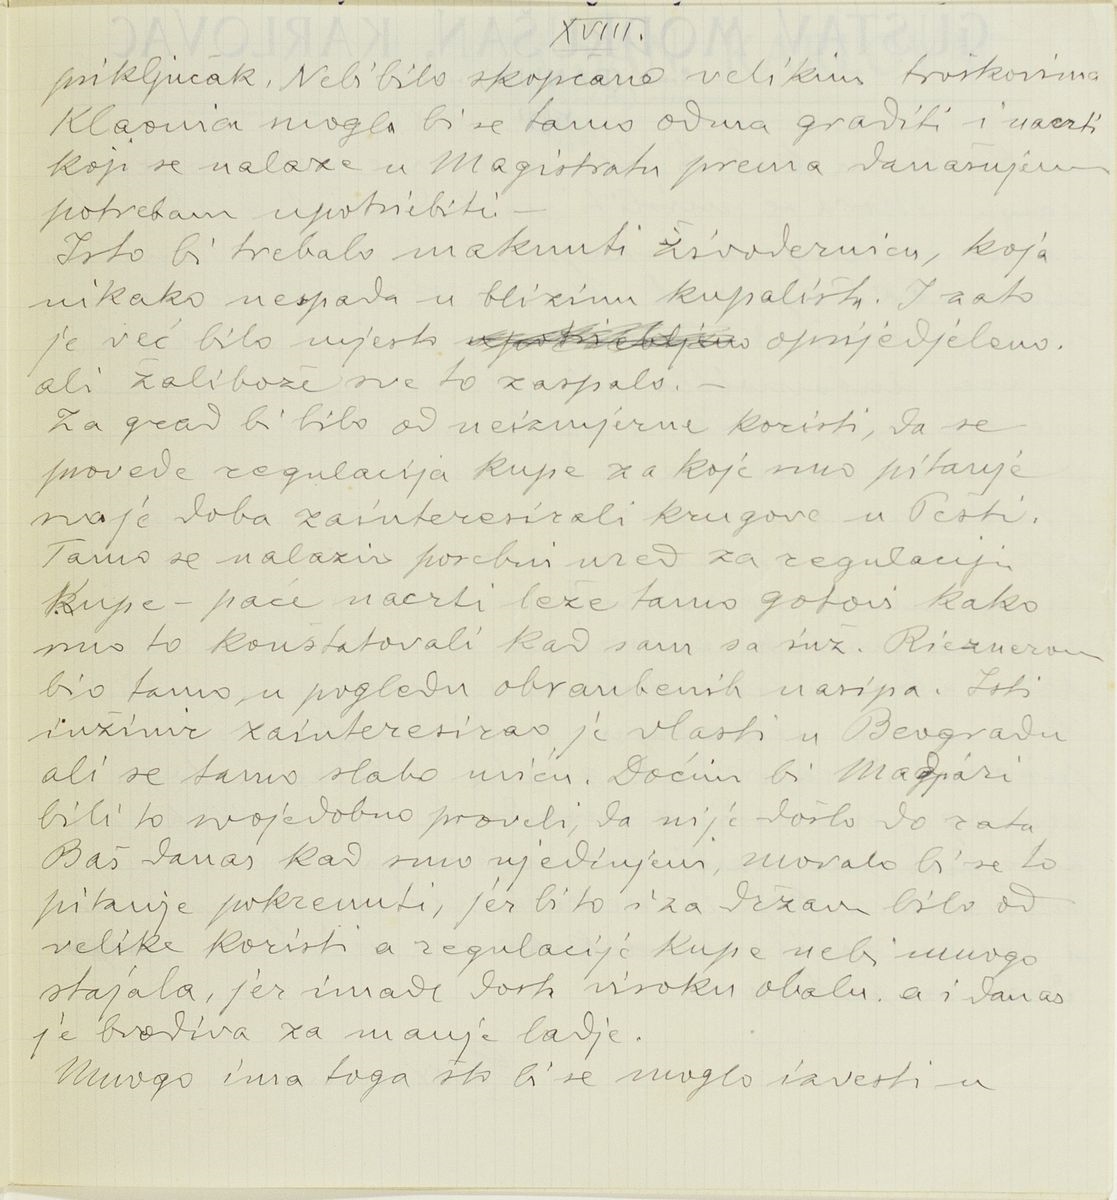 XVIII.
priključak. Nebi bilo skopčano velikim troškovima
Klaonica mogla bi se tamo odma graditi i nacrti
koji se nalaze u Magistratu prema današnjem
potrebam upotriebiti —
Isto bi trebalo maknuti Živodernicu, koja
nikako nespada u blizinu kupališta. I zato
je već bilo mjesto upotriebljeno oprijedjeleno.
ali žalibože sve to zaspalo. —
Za grad bi bilo od neizmjerne koristi, da se
provede regulacija Kupe za koje smo pitanje
svoje doba zainteresirali krugove u Pešti.
Tamo se nalazio posebni ured za regulaciju
Kupe – pače nacrti leže tamo gotovi kako
smo to konštatovali kad sam sa inž. Rieznerom
bio tamo u pogledu obranbenih nasipa. Isti
inžinir zainteresirao je vlasti u Beogradu
ali se tamo slabo miču. Dočim bi Madjari
bili to svojedobno proveli, da nije došlo do rata
Baš danas kad smo ujedinjeni, moralo bi se to
pitanje pokrenuti, jer bi to i za državu bilo od
velike koristi a regulacije Kupe nebi mnogo
stajala, jer imade dosta visoku obalu. a i danas
je brodiva za manje ladje.
Mnogo ima toga što bi se moglo izvesti u
GUSTAV MODRUŠAN, KARLOVAC